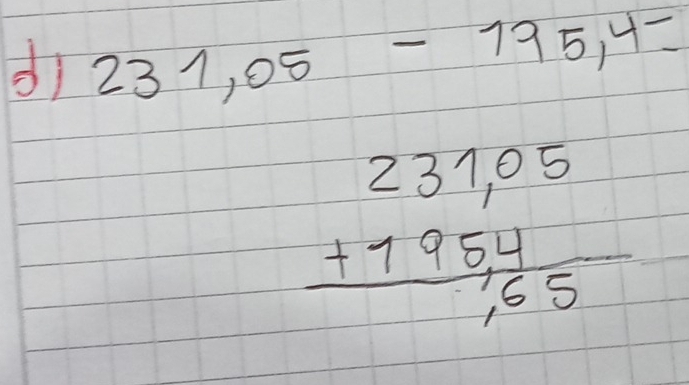 d) 231,05 - 195,4=
231,05
+195,4
,65